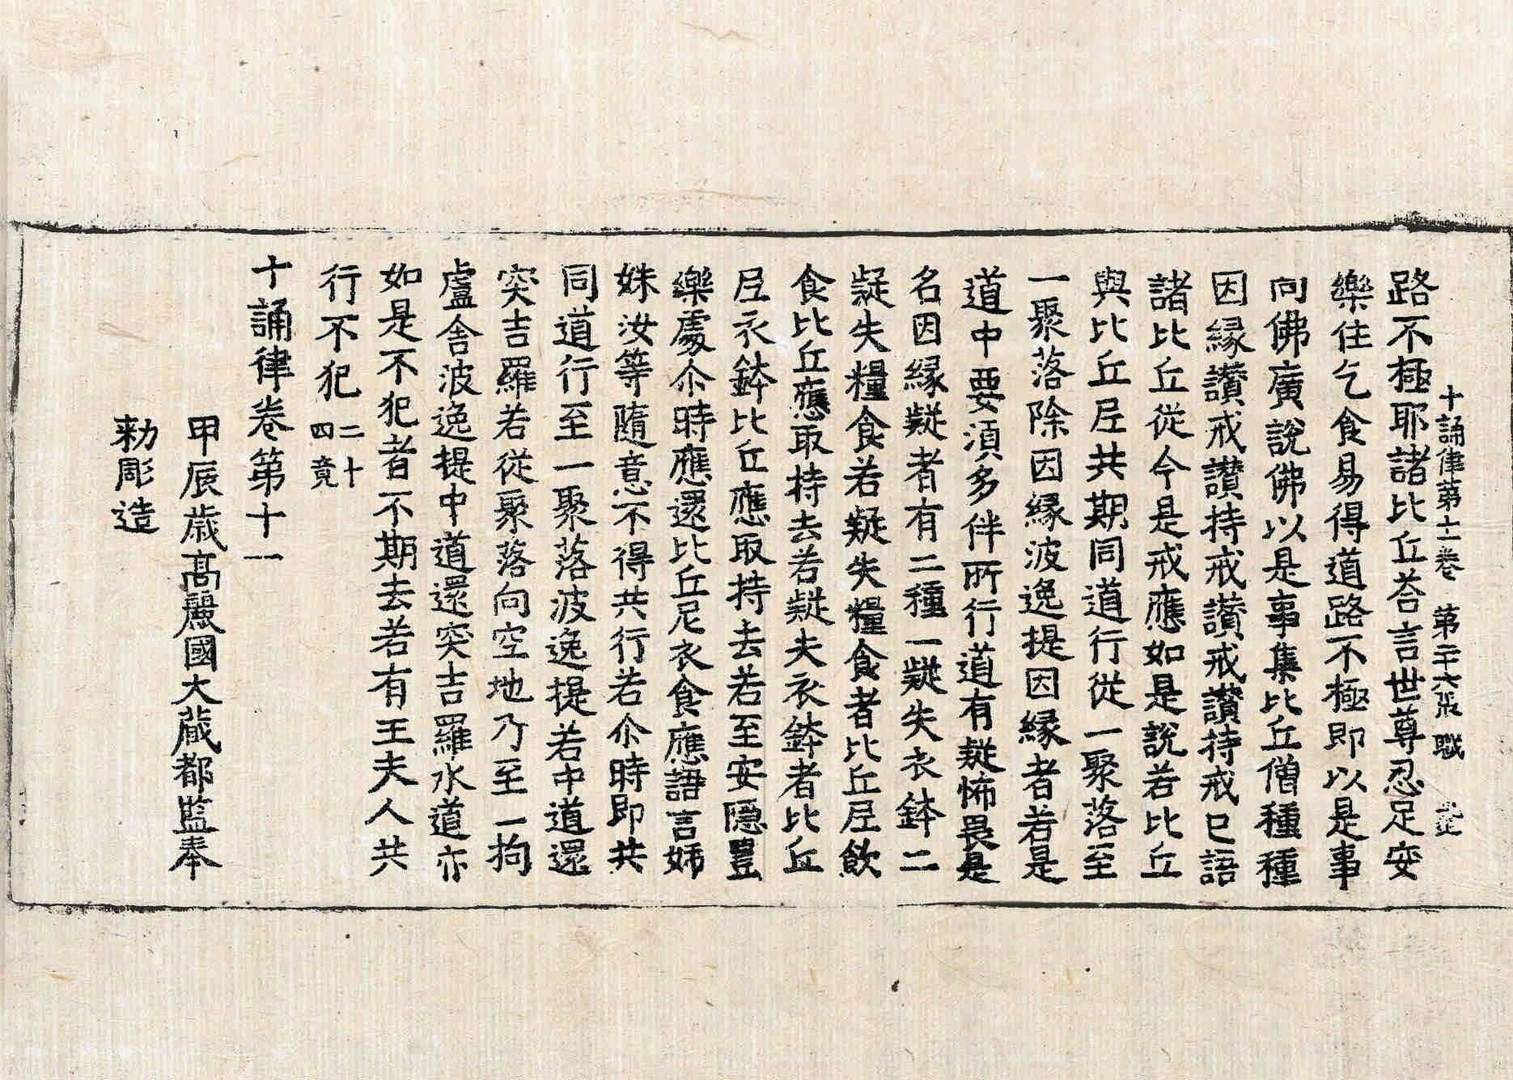 十誦律第十一卷 第二十六張 職
路不極耶諸比丘荅言世尊忍足安
樂住乞食易得道路不極即以是事
向佛廣說佛以是事集比丘僧種種
因緣讃戒讃持戒讃戒讃持戒已語
諸比丘從今是戒應如是說若比丘
與比丘尼共期同道行從一聚落至
一聚落除因緣波逸提因緣者若是
道中要須多伴所行道有疑怖畏是
名因緣疑者有二種一疑失衣鉢二
疑失糧食若疑失糧食者比丘尼飲
食比丘應取持去若疑失衣鉢者比丘
尼衣鉢比丘應取持去若至安隱豐
樂處尒時應還比丘尼衣食應語言姊
妹汝等隨意不得共行若尒時即共
同道行至一聚落波逸提若中道還
突吉羅若從聚落向空地乃至一拘
盧舍波逸提中道還突吉羅水道亦
如是不犯者不期去若有王夫人共
行不犯 二十四竟
十誦律卷第十一
甲辰歲高麗國大藏都監奉
勑彫造